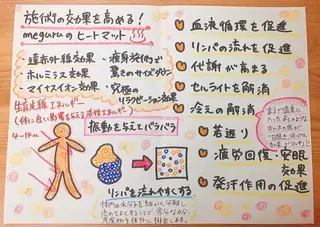 施術の効果を高める!
meguruのヒートマット
・遠赤外線効果
・ホルミシス効果
・マイナスイオン効果
・痩身施術で
驚きのサイズダウン
・究極の
リラクゼーション効果
生育光線エネルギー
(体に良い影響を与える活性エネルギー)
4~14μm
振動を与えてバラバラ
リンパを流れやすくする
体内の水分子を細かく分解し
流れをよくすることで、余分な水分、
老廃物を体外に排出します。
血液循環を促進
リンパの流れを促進
代謝が高まる
セルライトを解消
冷えの解消
若返り
疲労回復・安眠
効果
発汗作用の促進
まるで温泉に
入った